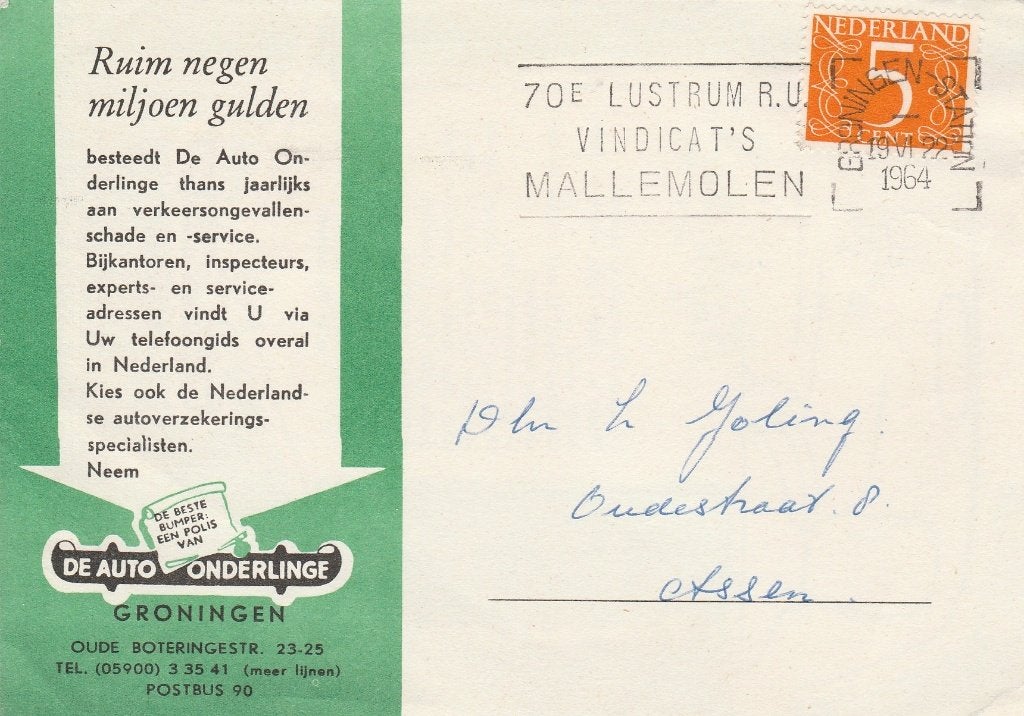 Ruim negen
miljoen gulden
besteedt De Auto On-
derlinge thans jaarlijks
aan verkeersongevallen-
schade en -service.
Bijkantoren, inspecteurs,
experts- en service-
adressen vindt U via
Uw telefoongids overal
in Nederland.
Kies ook de Nederland-
se autoverzekerings-
specialisten.
Neem
DE BESTE
BUMPER:
EEN POLIS
VAN
DE AUTO ONDERLINGE
GRONINGEN
OUDE BOTERINGESTR. 23-25
TEL. (05900) 3 35 41 (meer lijnen)
POSTBUS 90
70E LUSTRUM R.U.
VINDICAT'S
MALLEMOLEN
NEDERLAND
5
5 CENT
GRONINGEN-STATION
19 VI 22-
1964
Dhr L Joling.
Oudestraat 8.
Assen.